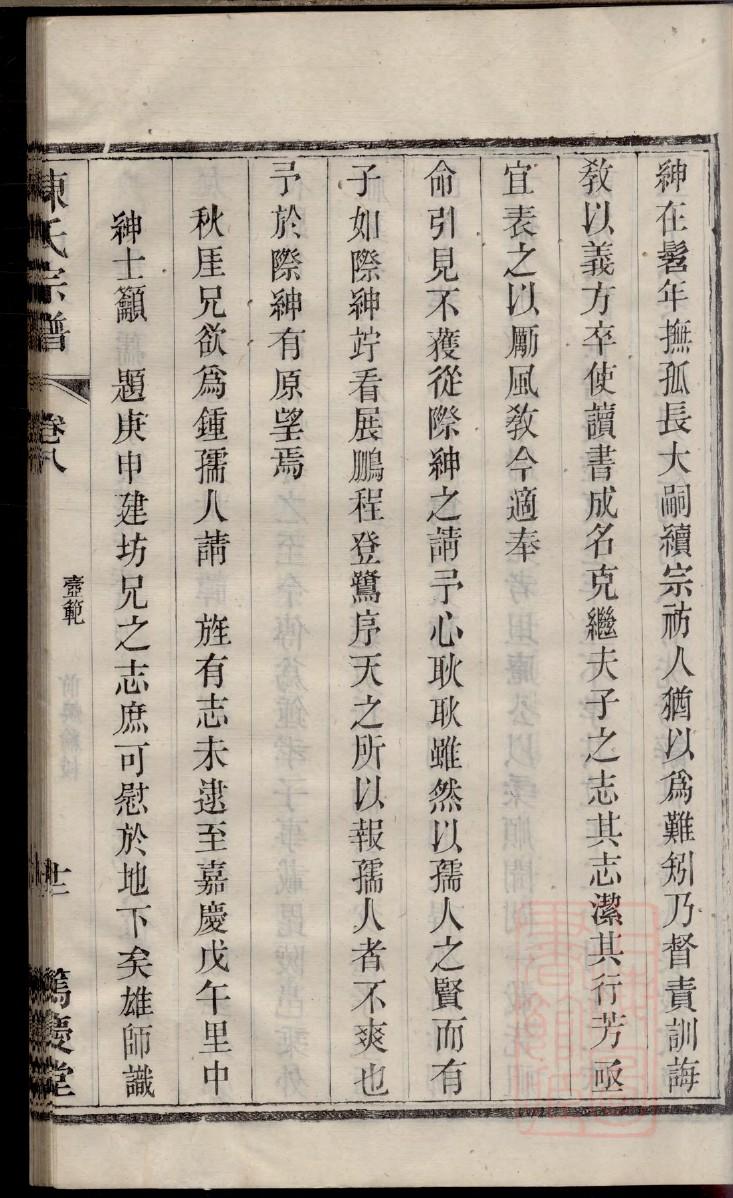 紳在髫年撫孤長大嗣續宗祊人猶以爲難矧乃督責訓誨
敎以義方卒使讀書成名克繼夫子之志其志潔其行芳亟
宜表之以勵風敎今適奉
命引見不獲從際紳之請予心耿耿雖然以孺人之賢而有
子如際紳竚看展鵬程登鷺序天之所以報孺人者不爽也
予於際紳有厚望焉
秋厓兄欲爲鍾孺人請　旌有志未逮至嘉慶戊午里中
紳士籲　題庚申建坊兄之志庶可慰於地下矣雄師識
陳氏宗譜　卷八　壼範　廿二　篤慶堂